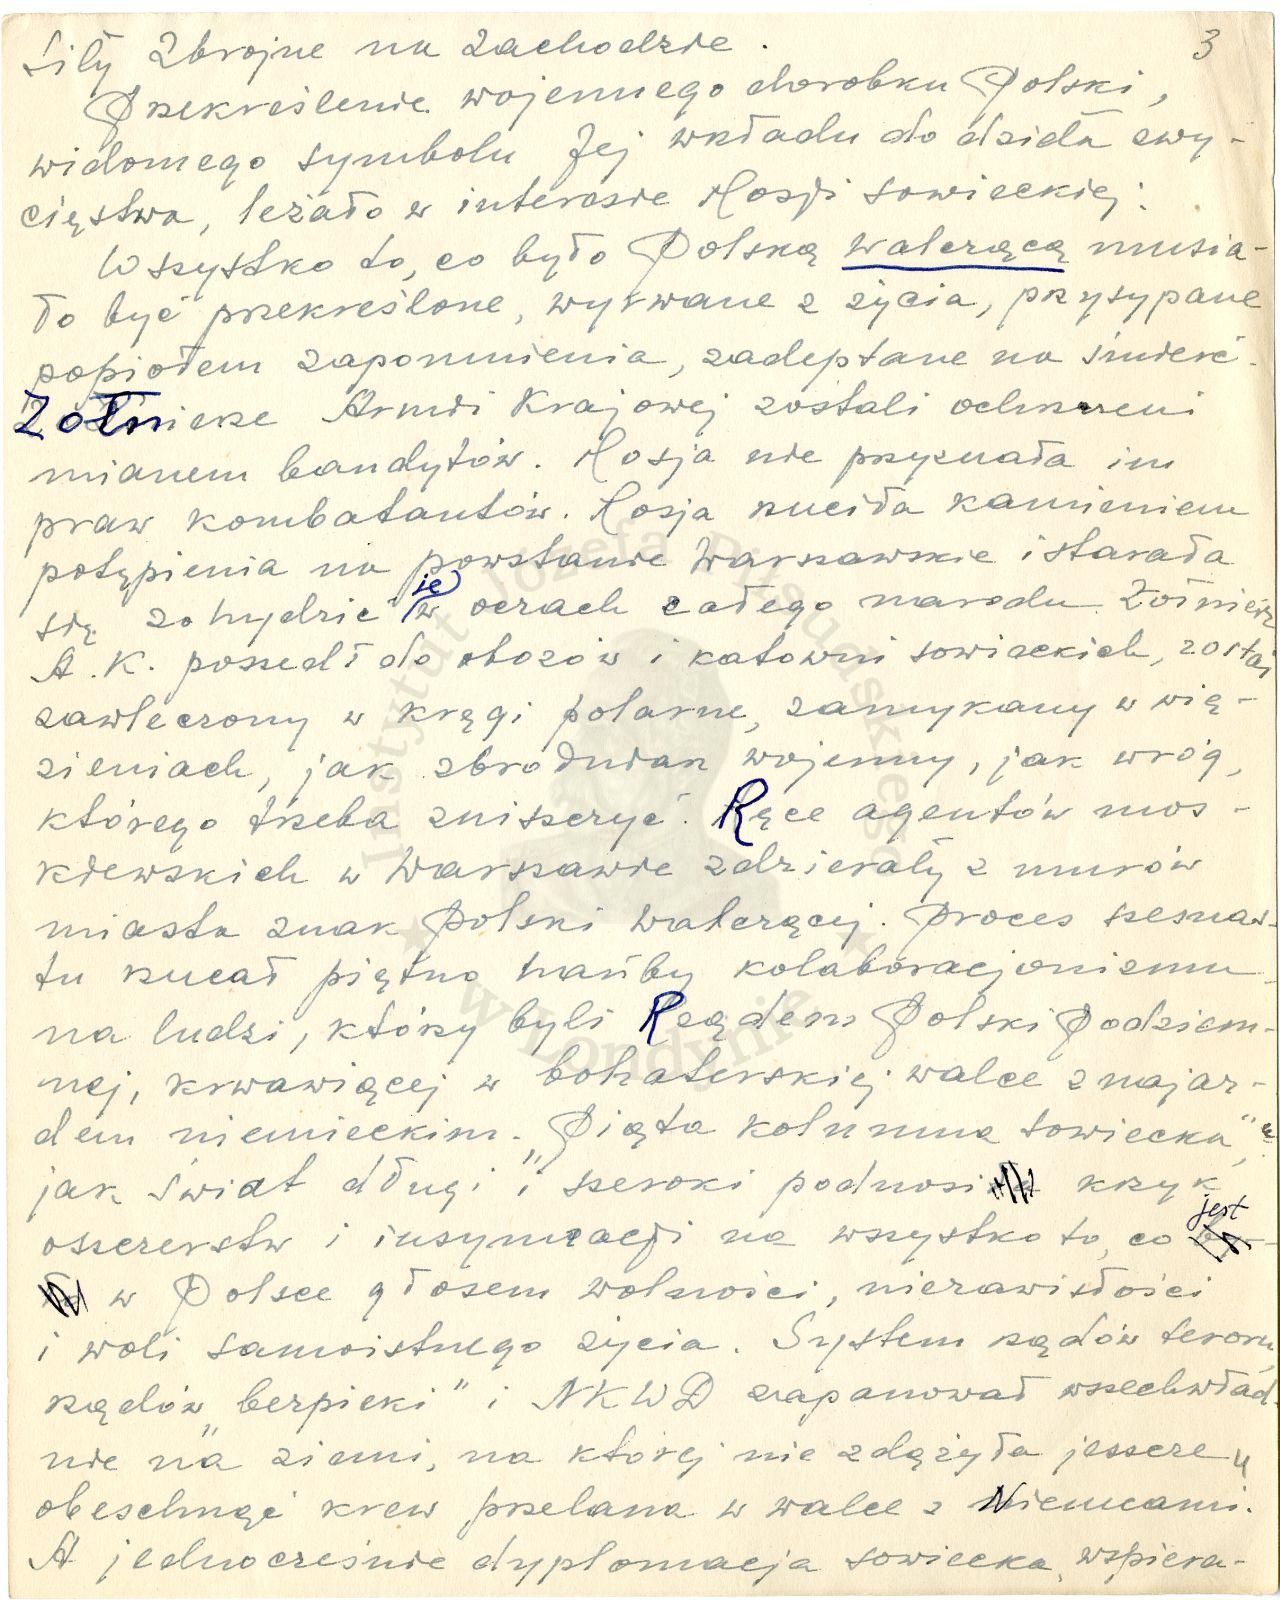 3
Siły Zbrojne na Zachodzie.
Przekreślenie wojennego dorobku Polski,
widomego symbolu Jej wkładu do dzieła zwy-
cięstwa, leżało w interesie Rosji sowieckiej.
Wszystko to, co było Polską Walczącą musia-
ło być przekreślone, wyrwane z życia, przysypane
popiołem zapomnienia, zadeptane na śmierć.
Żołnierze Armii Krajowej zostali ochrzczeni
mianem bandytów. Rosja nie przyznała im
praw kombatantów. Rosja rzuciła kamieniem
potępienia na powstanie Warszawskie i starała
się zohydzić je w oczach całego narodu. Żołnierz
A.K. poszedł do obozów i katowni sowieckich, został
zawleczony w kręgi polarne, zamykany w wię-
zieniach, jak zbrodniarz wojenny, jak wróg,
którego trzeba zniszczyć. Ręce agentów mos-
kiewskich w Warszawie zdzierały z murów
miasta znak Polski Walczącej. Proces szesnas-
tu rzucał piętno hańby kolaboracjonizmu
na ludzi, którzy byli Rządem Polski Podziem-
nej, krwawiącej w bohaterskiej walce z najaz-
dem niemieckim. „Piąta kolumna sowiecka",
jak świat długi i szeroki podnosi krzyk
oszczerstw i insynuacji na wszystko to, co jest
w Polsce głosem wolności, niezawisłości
i woli samoistnego życia. System rządów teroru,
rządów „bezpieki" i NKWD zapanował wszechwład-
nie na ziemi, na której nie zdążyła jeszcze
obeschnąć krew przelana w walce z Niemcami.
A jednocześnie dyplomacja sowiecka, wspiera-
Instytut Józefa Piłsudskiego
w Londynie